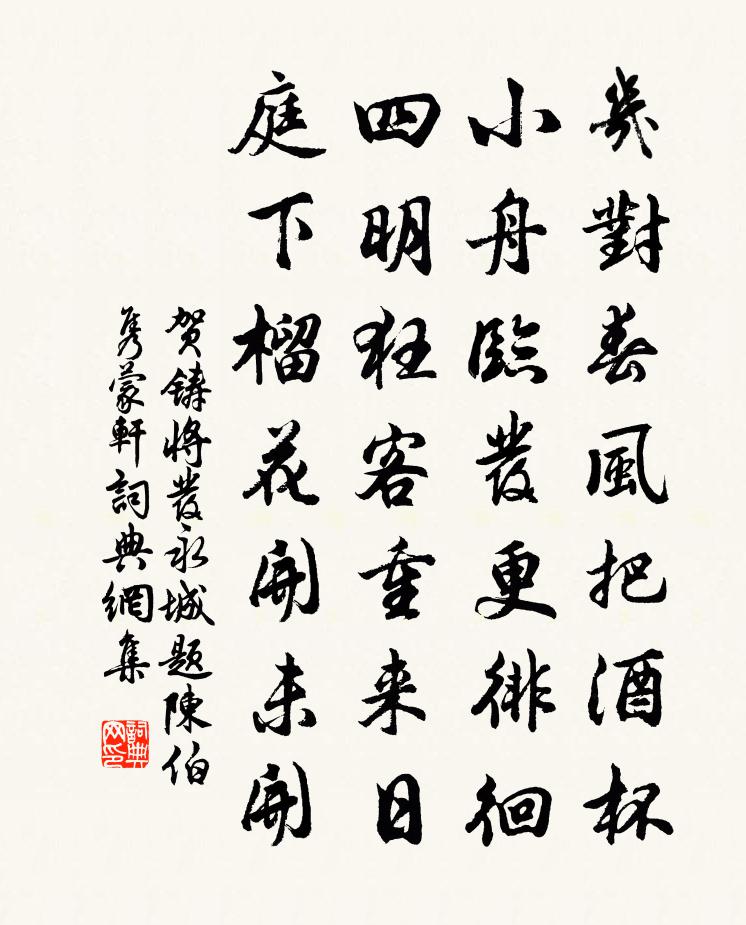 幾對春風把酒杯
小舟臨發更徘徊
四明狂客重来日
庭下榴花開未開
贺鑄將發永城題陳伯
隽蒙軒詞典網集
詞典
网印